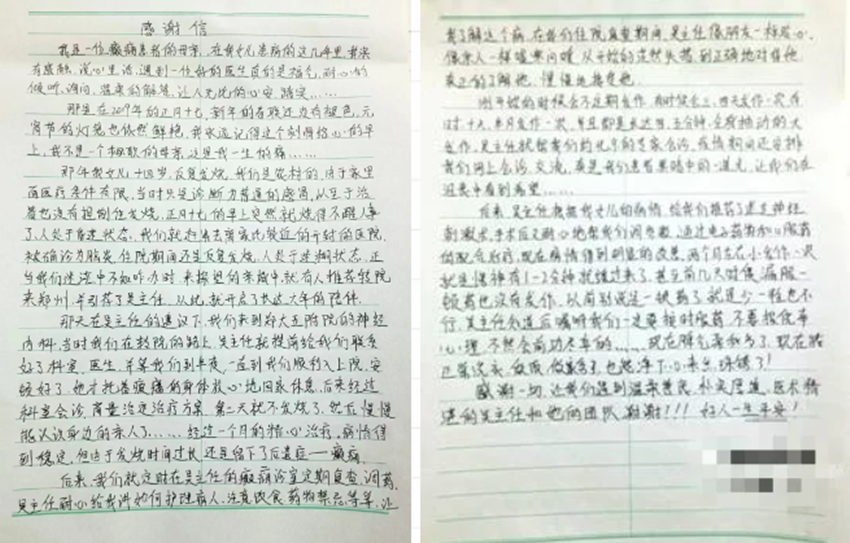 感谢信
我是一位癫痫患者的母亲，在我女儿患病的这几年里，我深
有感触，浅心生活，遇到一位好的医生真的是福气，耐心的
倾听、询问，温柔的解答，让人无比的心安、踏实……
那是在2019年的正月十七，新年的春联还没有褪色，元
宵节的灯笼也依然鲜艳，我永远记得这个刻骨铭心的早
上，我不是一个称职的母亲，这是我一生的痛……
那年我女儿十四岁，反复发烧，我们是农村的，由于家里
面医疗条件有限，当时只是诊断为普通的感冒，以至于治
着也没有控制住发烧，正月十七的早上突然就烧得不醒人事
了，人处于昏迷状态，我们就赶紧去离家比较近的开封的医院，
被确诊为脑炎，住院期间还是反复发烧，人处于迷糊状态，正
当我们迷茫中不知咋办时，来探望的亲戚中，就有人推荐转院
来郑州，并引荐了吴主任，从此，就开启了长达六年的陪伴。
那天在吴主任的建议下，我们来到郑大五附院的神经
内科，当时我们在转院的路上，吴主任就提前给我们联系
好了科室、医生，并等我们到半夜，一直到我们顺利入上院，安
顿好了，她才拖着疲惫的身体放心地回家休息，后来经过
科室会诊，商量治定治疗方案，第二天就不发烧了，然后慢慢
能认识身边的亲人了……经过一个月的精心治疗，病情得
到稳定，但由于发烧时间过长，还是留下了后遗症——癫痫。
后来，我们就定时在吴主任的癫痫诊室定期复查、调药，
吴主任耐心给我讲如何护理病人，注意饮食、药物禁忌等等，让
我了解这个病，在我们住院复查期间，吴主任像朋友一样贴心，
像亲人一样嘘寒问暖，从开始的茫然失措，到正确地对待他，
真正的了解他，慢慢地接受他。
刚开始的时候会不定期发作，有时候会三、四天发作一次，有
时十天、半月发作一次，并且都是长达四、五分钟，全身抽动的大
发作，吴主任就帮我们约北京的专家会诊，疫情期间还安排
我们网上会诊、交流，真是我们患者黑暗中的一道光，让我们在
沮丧中看到希望……
后来，吴主任根据我女儿的病情，给我们推荐了迷走神经
刺激术，手术后又耐心地帮我们调参数，通过电子药物和口服药
的配合治疗，现在病情得到明显的改善，两个月左右小发作一次，
就是愣神有1-2分钟就缓过来了，甚至前几天时候，漏服一
顿药也没有发作，以前别说是一顿药了，就是少一粒也不
行，吴主任知道后嘱咐我们一定要按时服药，不要报侥幸
心理，不然会前功尽弃的……，现在脾气柔和多了，现在能
正常说永、做饭、做家务了，也能净下心来去珠绣了！
感谢一切，让我们遇到温柔善良、朴实厚道、医术精
湛的吴主任和他的团队，谢谢！！！好人一生平安！